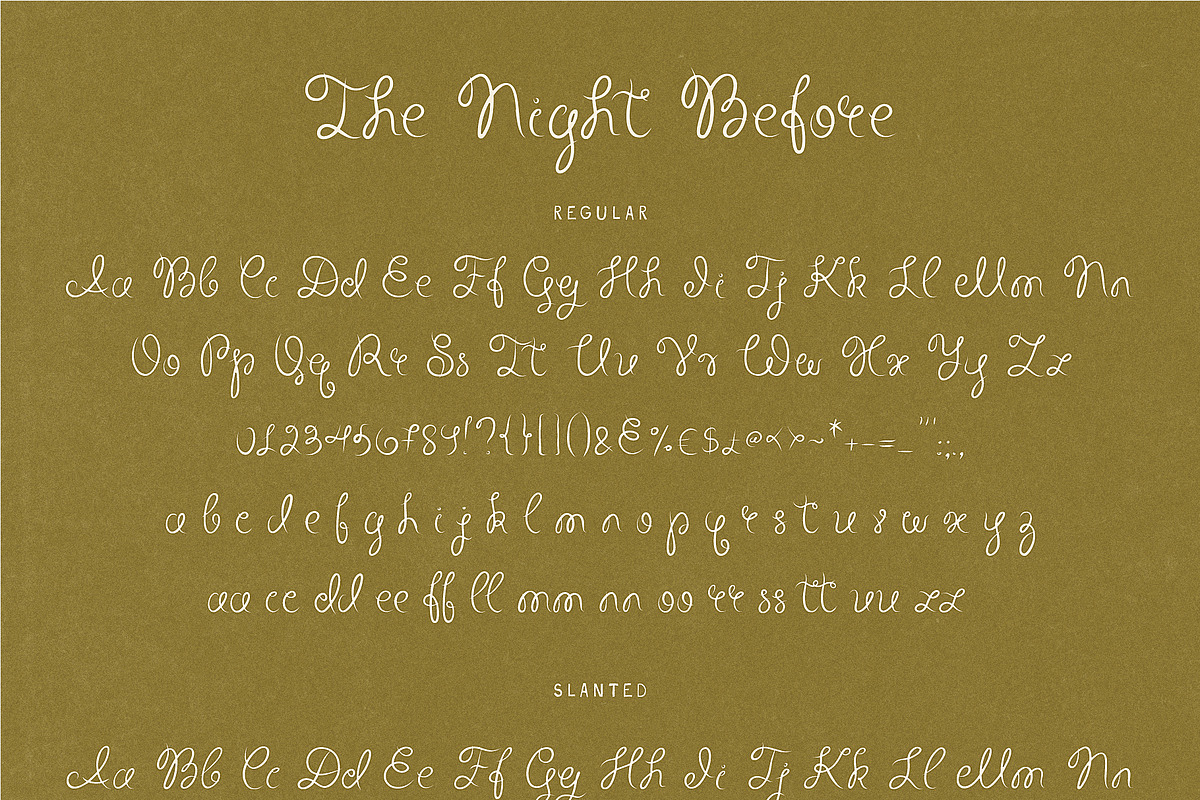 The Night Before
REGULAR
Aa Bb Cc Dd Ee Ff Gg Hh Ii Jj Kk Ll Mm Nn
Oo Pp Qq Rr Ss Tt Uu Vv Ww Xx Yy Zz
0123456789!?{}[]()&&%€$£@<>~*+-=_"':;.,
a b c d e f g h i j k l m n o p q r s t u v w x y z
aa cc dd ee ff ll mm nn oo rr ss tt uu zz
SLANTED
Aa Bb Cc Dd Ee Ff Gg Hh Ii Jj Kk Ll Mm Nn